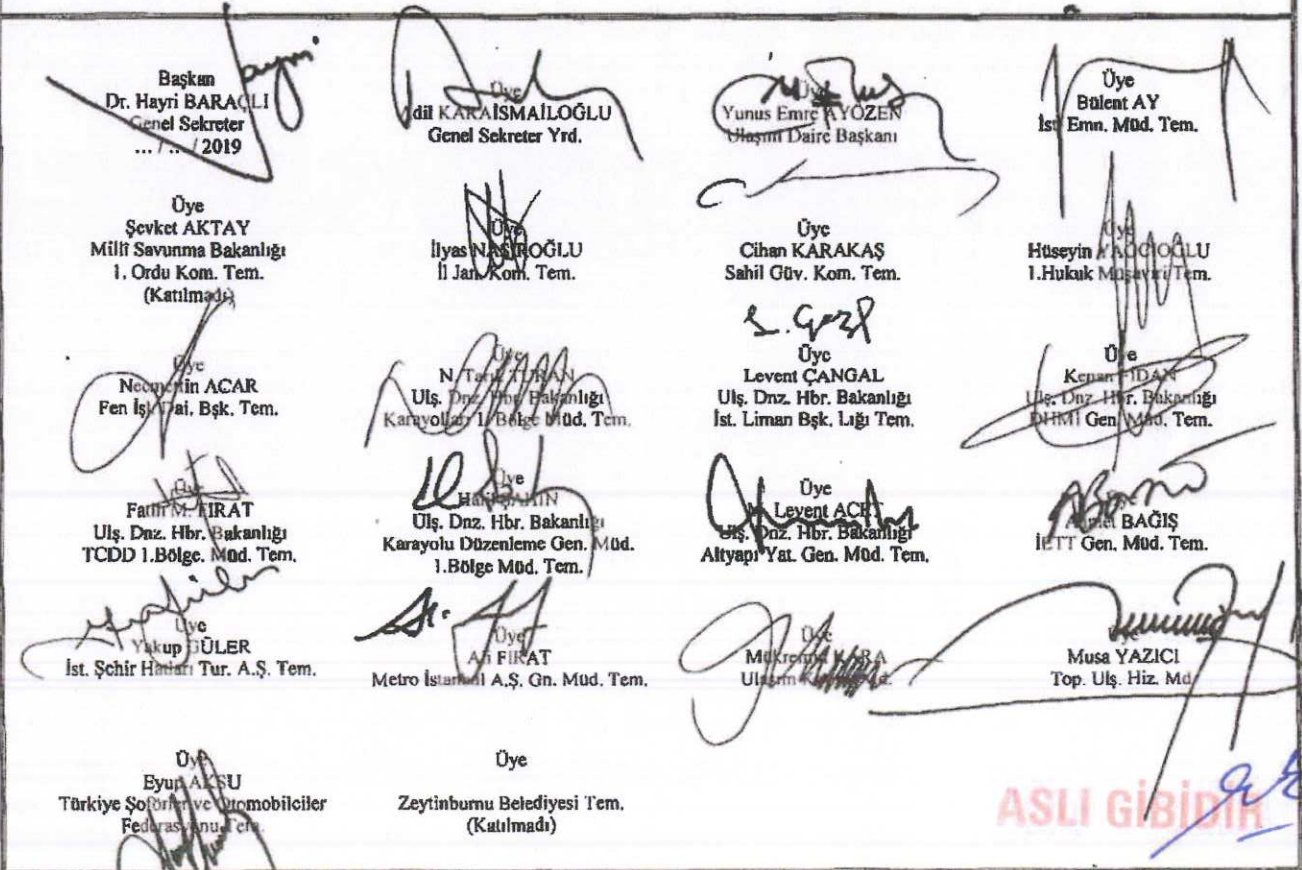 Başkan
Dr. Hayri BARAÇLI
Genel Sekreter
... / ... / 2019
Üye
Adil KARAİSMAİLOĞLU
Genel Sekreter Yrd.
Üye
Yunus Emre AYÖZEN
Ulaşım Daire Başkanı
Üye
Bülent AY
İst. Emn. Müd. Tem.
Üye
Şevket AKTAY
Milli Savunma Bakanlığı
1. Ordu Kom. Tem.
(Katılmadı)
Üye
İlyas
İl Jan. Kom. Tem.
Üye
Cihan KARAKAŞ
Sahil Güv. Kom. Tem.
Üye
Hüseyin
1.Hukuk Müşaviri Tem.
Üye
Necmettin ACAR
Fen İşl. Dai. Bşk. Tem.
Üye
N. Tarık TURAN
Ulş. Dnz. Hbr. Bakanlığı
Karayolları 1. Bölge Müd. Tem.
Üye
Levent ÇANGAL
Ulş. Dnz. Hbr. Bakanlığı
İst. Liman Bşk. Lığı Tem.
Üye
Kenan FİDAN
Ulş. Dnz. Hbr. Bakanlığı
DHMİ Gen. Müd. Tem.
Üye
Fatih M. FIRAT
Ulş. Dnz. Hbr. Bakanlığı
TCDD 1.Bölge. Müd. Tem.
Üye
Ulş. Dnz. Hbr. Bakanlığı
Karayolu Düzenleme Gen. Müd.
1.Bölge Müd. Tem.
Üye
Levent
Ulş. Dnz. Hbr. Bakanlığı
Altyapı Yat. Gen. Müd. Tem.
Ahmet BAĞIŞ
İETT Gen. Müd. Tem.
Üye
Yakup GÜLER
İst. Şehir Hatları Tur. A.Ş. Tem.
Üye
Ali FIRAT
Metro İstanbul A.Ş. Gn. Müd. Tem.
Üye
Ulaşım
Üye
Musa YAZICI
Top. Ulş. Hiz. Md.
Üye
Eyup AKSU
Türkiye Şoförler ve Otomobilciler
Federasyonu Tem.
Üye
Zeytinburnu Belediyesi Tem.
(Katılmadı)
ASLI GİBİDİR